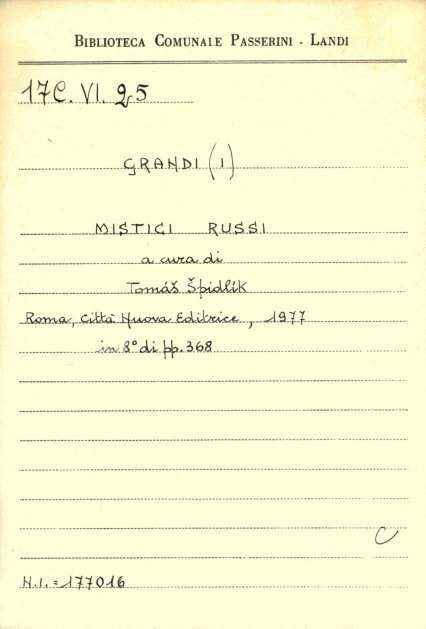 BIBLIOTECA COMUNALE PASSERINI - LANDI
17C. VI. 25
GRANDI (I)
MISTICI RUSSI
a cura di
Tomáš Špidlík
Roma, Città Nuova Editrice, 1977
in 8° di pp. 368
C
N.I. = 177016